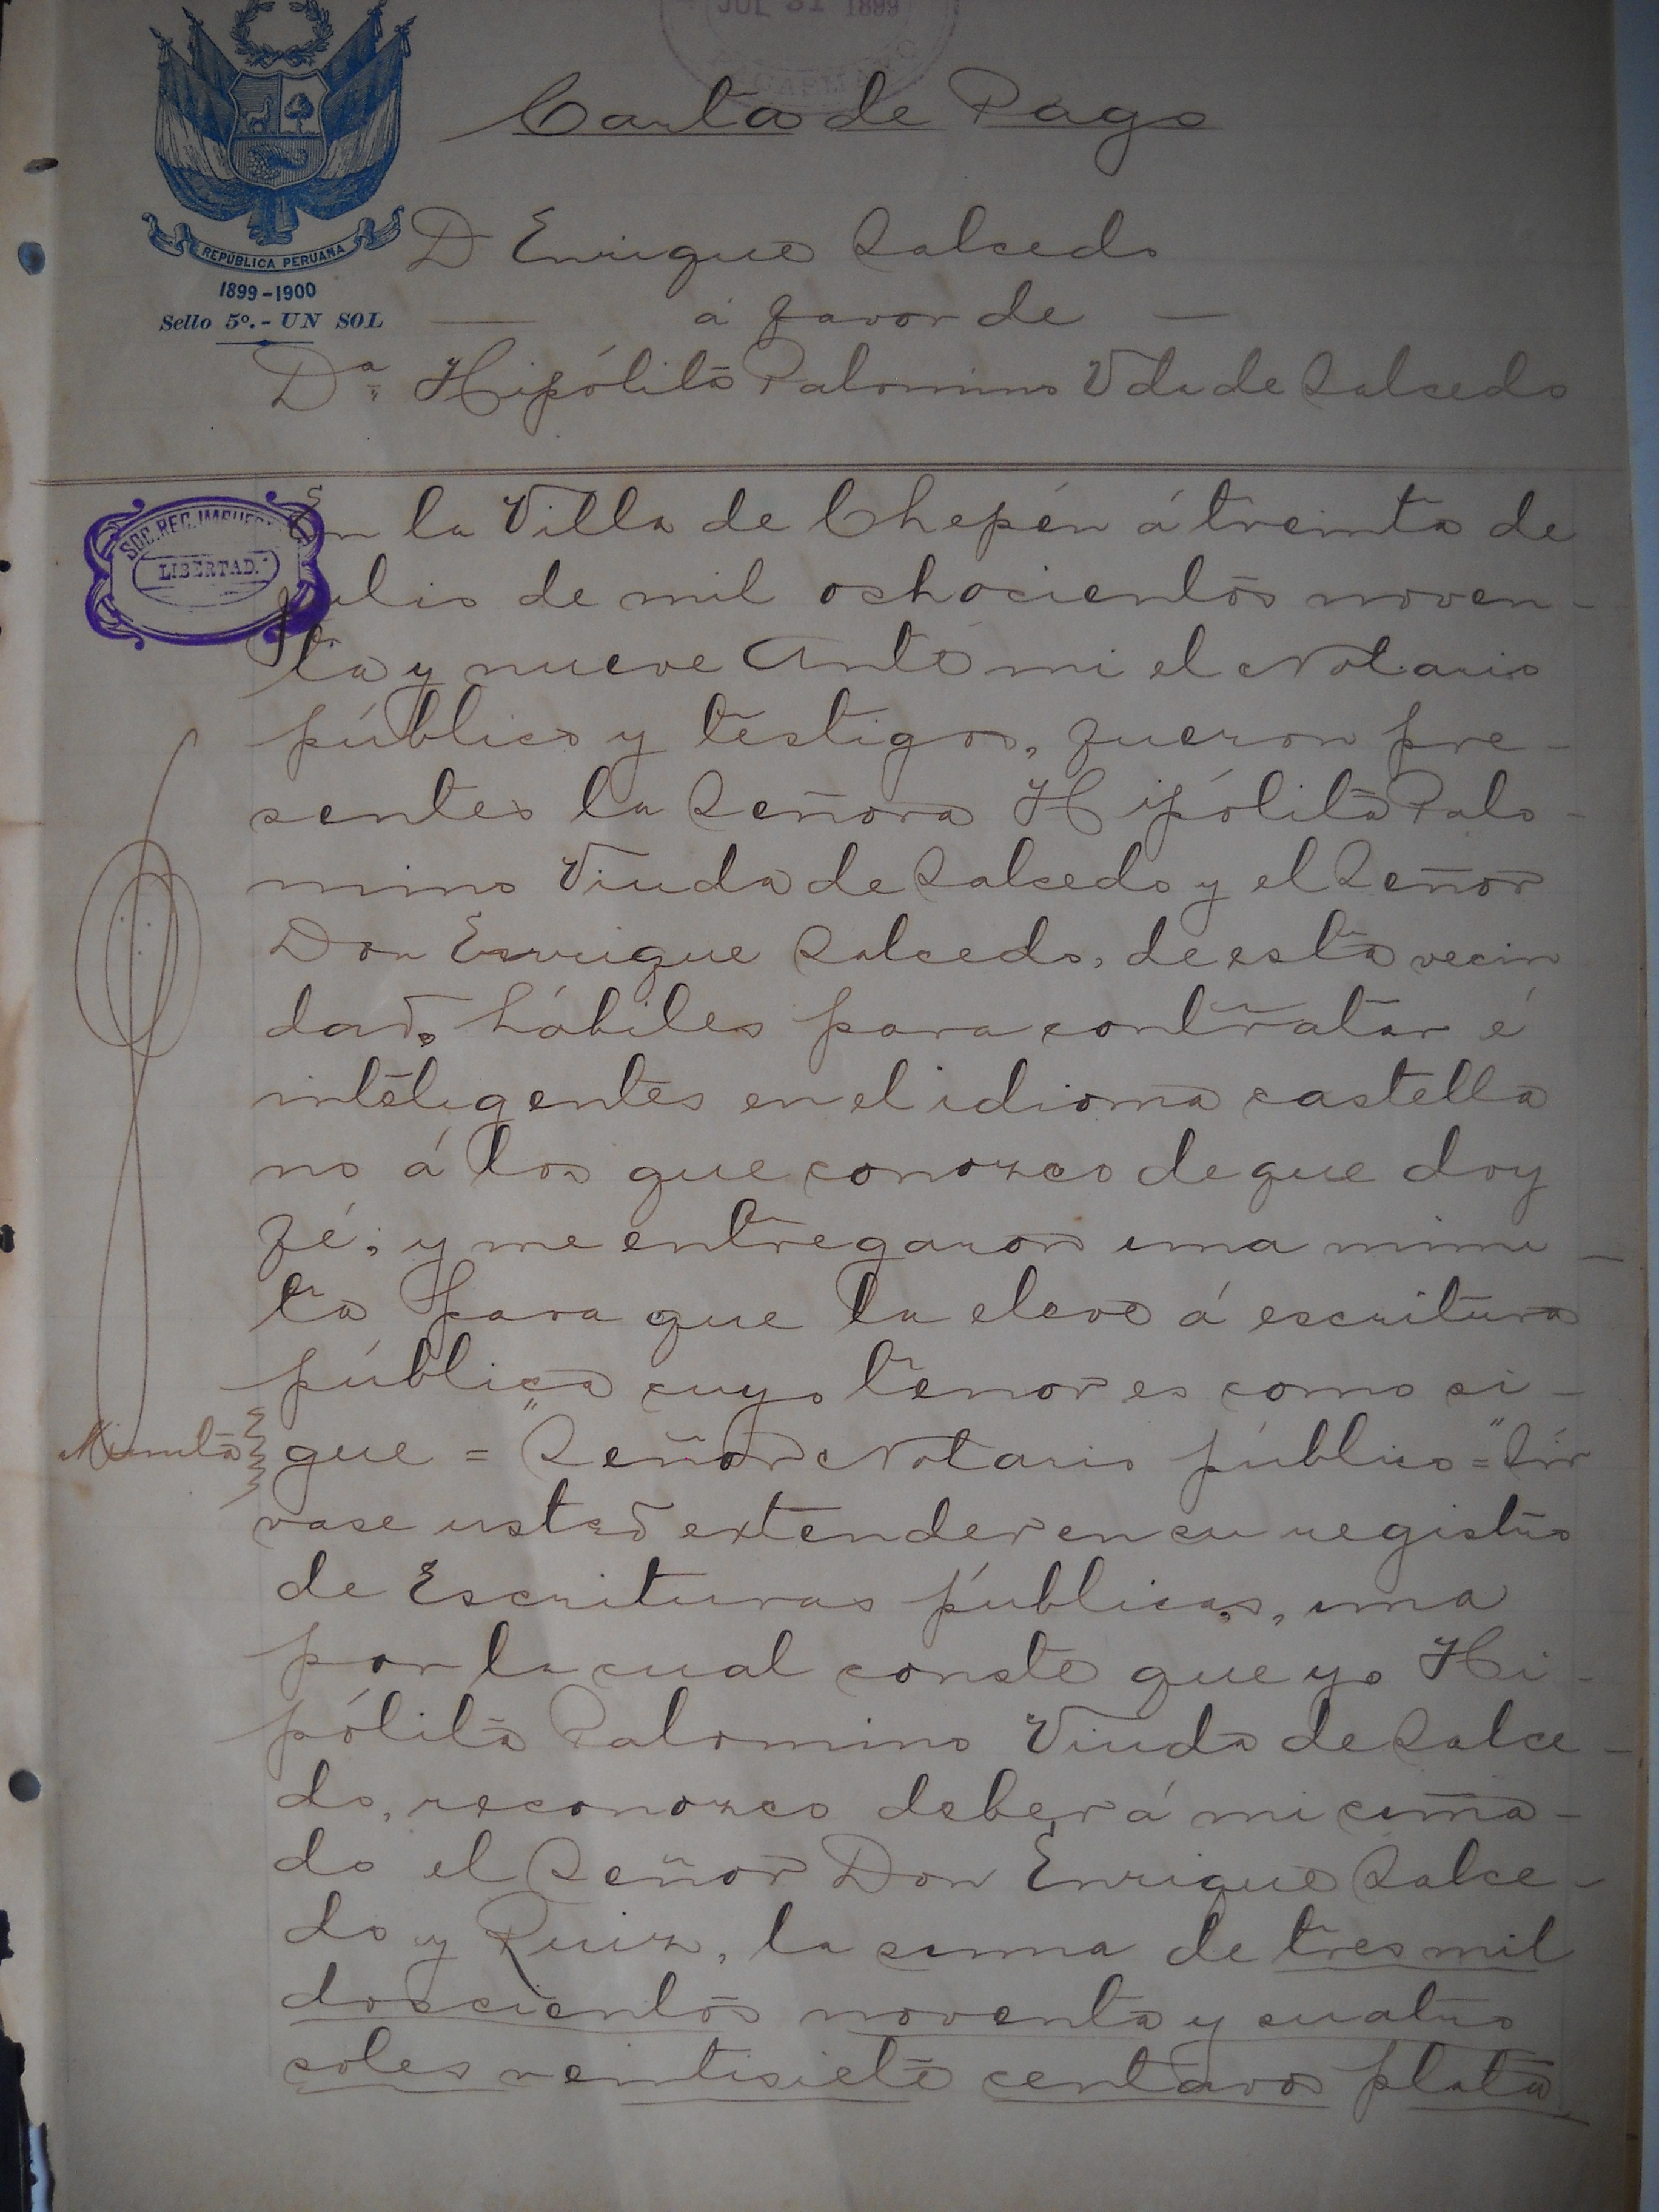 JUL 31 1899
Carta de Pago
REPÚBLICA PERUANA
1899-1900
Sello 5º.- UN SOL
D Enrique Salcedo
á favor de
Dª Hipólita Palomino Vda de Salcedo
SOC. REC. IMPUES
LIBERTAD.
En la Villa de Chepén á treinta de
Julio de mil ochocientos noven-
ta y nueve Ante mi el Notario
público y testigos, fueron pre-
sentes la Señora Hipólita Palo-
mino Viuda de Salcedo y el Señor
Don Enrique Salcedo, de esta vecin
dad, hábiles para contratar é
inteligentes en el idioma castella
no á los que conozco de que doy
fé, y me entregaron una minu-
ta para que la eleve á escritura
pública cuyo tenor es como si-
Minuta
gue = "Señor Notario público = "Sír
vase usted extender en su registro
de Escrituras públicas, una
por la cual conste que yo Hi-
pólita Palomino Viuda de Salce-
do, reconozco deber á mi cuña-
do el Señor Don Enrique Salce-
do y Ruiz, la suma de tres mil
doscientos noventa y cuatro
soles veintisiete centavos plata